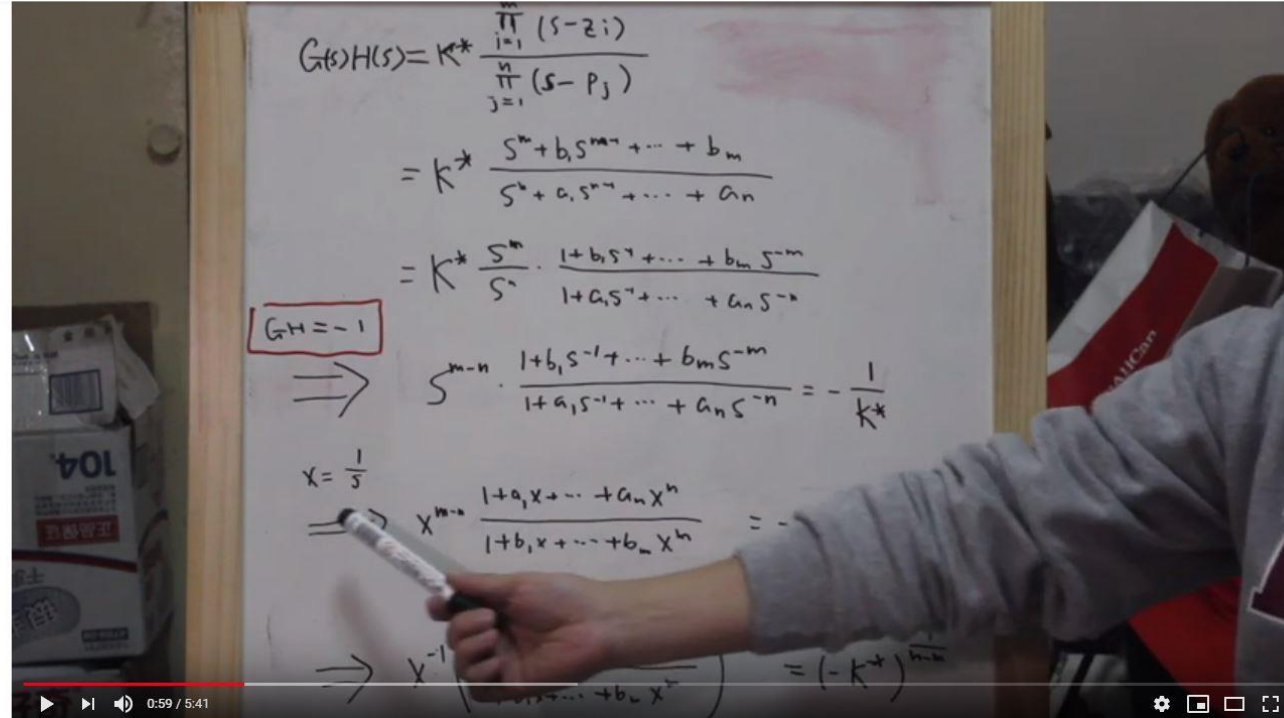 m
G(s)H(s) = K* ∏ (s - zi)
i=1
n
∏ (s - pj)
j=1
= K* s^m + b₁s^(m-1) + ... + bm
s^n + a₁s^(n-1) + ... + an
= K* s^m / s^n · 1 + b₁s^-1 + ... + bm s^-m
1 + a₁s^-1 + ... + an s^-n
GH = -1
⇒ s^(m-n) · 1 + b₁s^-1 + ... + bm s^-m
1 + a₁s^-1 + ... + an s^-n = - 1/K*
x = 1/s
⇒ x^(m-n) 1 + a₁x + ... + an x^n
1 + b₁x + ... + bm x^n = -
⇒ x^-1 ( ... + b x ) = (-K*)^(1/(n-m))
104
正品保证
0:59 / 5:41